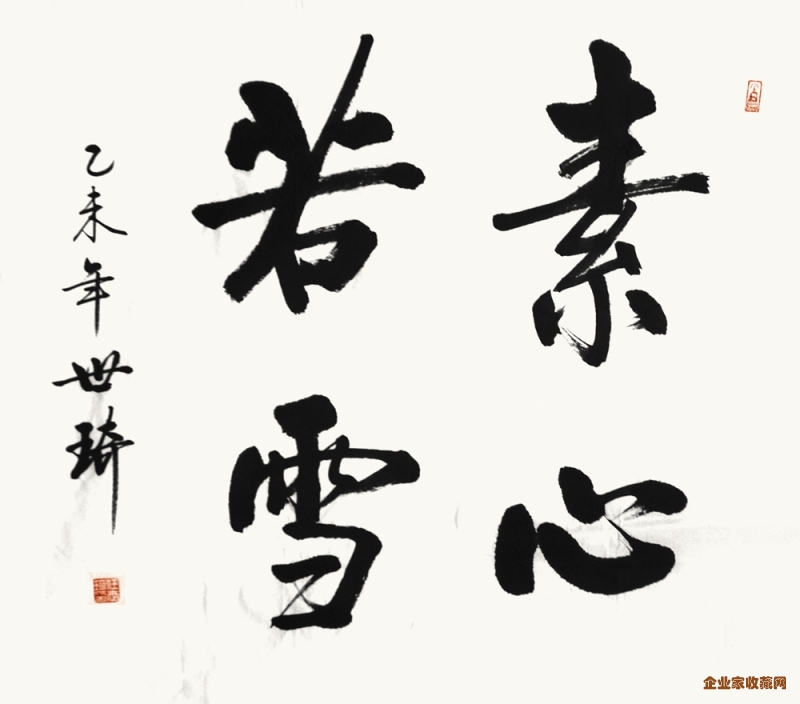 素心
若雪
乙未年世琦
企业家收藏网